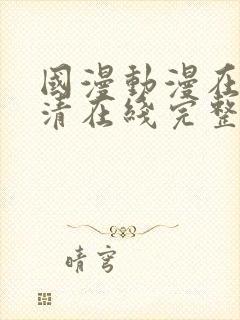 國漫動漫在
清在綫完整
晴穹